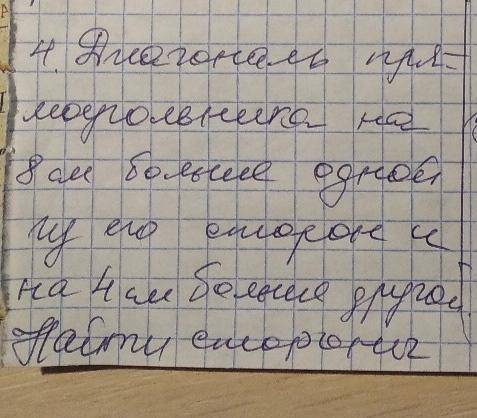 4. Диагональ пря-
моугольника на
8 см больше одной
из его сторон и
на 4 см больше другой
Найти стороны